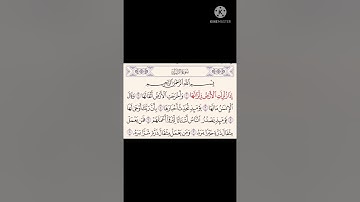 KINEMASTER
بِسْمِ اللَّهِ الرَّحْمَٰنِ الرَّحِيمِ
إِذَا زُلْزِلَتِ الْأَرْضُ زِلْزَالَهَا ۝ وَأَخْرَجَتِ الْأَرْضُ أَثْقَالَهَا ۝ وَقَالَ
الْإِنسَانُ مَا لَهَا ۝ يَوْمَئِذٍ تُحَدِّثُ أَخْبَارَهَا ۝ بِأَنَّ رَبَّكَ أَوْحَىٰ لَهَا
۝ يَوْمَئِذٍ يَصْدُرُ النَّاسُ أَشْتَاتًا لِّيُرَوْا أَعْمَالَهُمْ ۝ فَمَن يَعْمَلْ
مِثْقَالَ ذَرَّةٍ خَيْرًا يَرَهُ ۝ وَمَن يَعْمَلْ مِثْقَالَ ذَرَّةٍ شَرًّا يَرَهُ ۝